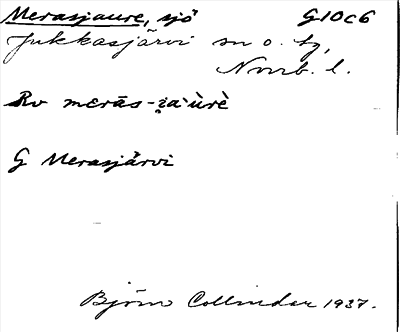 Merasjaure, sjö G10c6
Jukkasjärvi sn o. tg,
Norrb. l.
Rv merās-i̯a`ùrè
G Merasjärvi
Björn Collinder 1937.